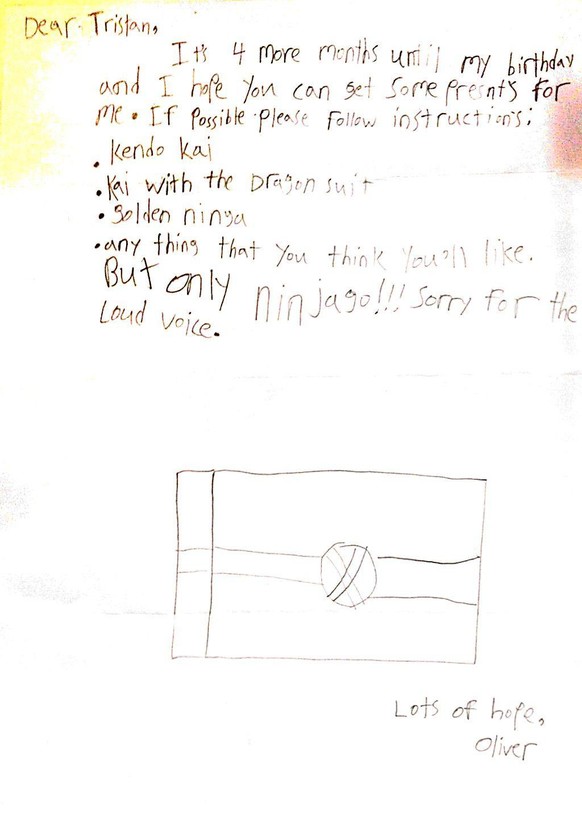 Dear Tristan,
It's 4 more months until my birthday
and I hope you can get some presnts for
me. If possible please follow instructions:
. Kendo kai
. Kai with the Dragon suit
• golden ninga
• any thing that you think you'll like.
But only ninjago!!! Sorry for the
Loud voice.
Lots of hope,
Oliver